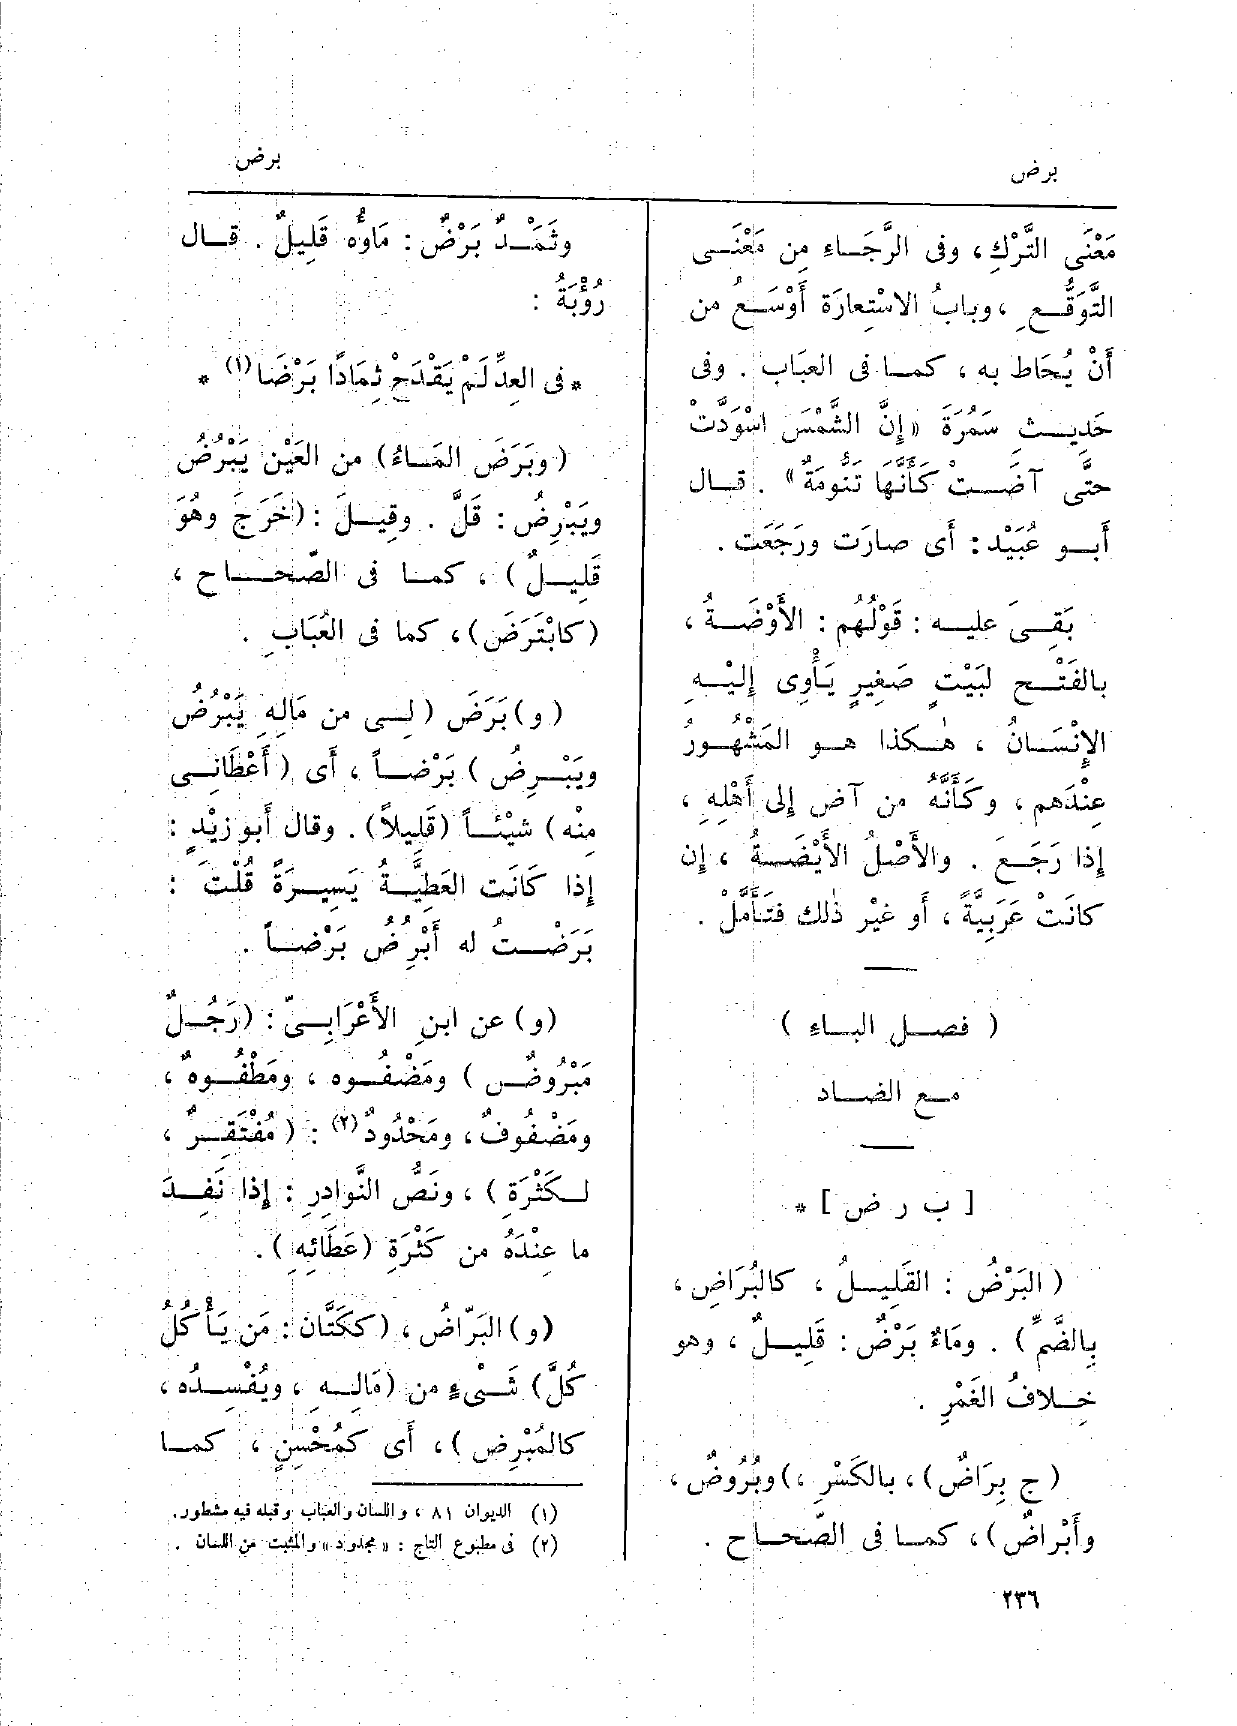 برض
برض
مَعْنَى التَّرْكِ، وفى الرَّجَـاءِ مِن مَعْنَـى
التَّوَقُّـعِ، وبابُ الاسْتِعارَة أَوْسَـعُ من
أَنْ يُحَاط به، كمـا فى العبَاب. وفى
حَدِيـث سَمُرَةَ «إِنَّ الشَّمْسَ اسْوَدَّتْ
حتَّى آضَـتْ كَأَنَّهَا تَنُّومَةٌ». قـال
أَبـو عُبَيْد: أَى صارَت ورَجَعَت.
بَقِـىَ عليـه: قَوْلُهُم: الأَوْضَـةُ،
بالفَتْـح لبَيْتٍ صَغِيرٍ يَأْوِى إِلَيْـهِ
الإِنْسَـانُ، هٰـكذا هـو المَشْهُورُ
عِنْدَهم، وكَأَنَّهُ من آضَ إِلى أَهْلِهِ،
إِذا رَجَـعَ. والأَصْلُ الأَيْضَـةُ، إِن
كانَتْ عَرَبِيَّةً، أَو غيْر ذٰلك فتَأَمَّلْ.
( فصـل البـاء )
مـع الضـاد
[ ب ر ض ] *
( البَرْضُ : القَلِيـلُ، كالبُرَاضِ،
بِالضَّمِّ ). ومَاءٌ بَرْضٌ: قَلِيـلٌ، وهو
خِـلافُ الغَمْرِ.
( ج بِرَاضٌ )، بالكَسْرِ، ) وبُرُوضٌ،
وأَبْراضٌ )، كمـا فى الصّحـاح.
وثَمَـدٌ بَرْضٌ: مَاؤُه قَلِيلٌ. قـال
رُؤْبَةُ :
* فى العِدِّ لَمْ يَقْدَحْ ثِمَادًا بَرْضَا (١) *
( وبَرَضَ المَـاءُ ) من العَيْنِ يَبْرُضُ
ويَبْرِضُ : قَلَّ. وقِيـلَ : (خَرَجَ وهُوَ
قَلِيـلٌ )، كمـا فى الصّحـاح،
( كابْتَرَضَ )، كما فى العُبَابِ.
( و ) بَرَضَ ( لِـى من مَالِهِ يَبْرُضُ
ويَبْـرِضُ ) بَرْضـاً، أَى ( أَعْطَانِـى
مِنْه ) شَيْئـاً ( قَلِيلاً ). وقال أَبو زيْدٍ :
إِذا كَانَت العَطِيَّـةُ يَسِيـرَةً قُلْتَ :
بَرَضْـتُ له أَبْرُِضُ بَرْضـاً.
( و ) عن ابنِ الأَعْرَابِـىّ : ( رَجُـلٌ
مَبْرُوضٌ ) ومَضْفُـوه، ومَطْفُـوهٌ،
ومَضْفُوفٌ، ومَحْدُودٌ (٢) : ( مُفْتَقِـرٌ،
لـكَثْرَةِ )، ونَصُّ النَّوادِرِ : إِذا نَفِـدَ
ما عِنْدَهُ من كَثْرَةِ ( عَطَائِهِ ).
( و ) البَرّاضُ، ( ككَتَّان : مَن يَأْكُلُ
كُلَّ ) شَـىْءٍ من ( مَالِـهِ، ويُفْسِـدُه،
كالمُبْرِض )، أَى كمُحْسِنٍ، كمـا
(١) الديوان ٨١، واللسان والعباب وقبله فيه مشطور.
(٢) فى مطبوع التاج : « مجدود » والمثبت من اللسان.
٢٣٦